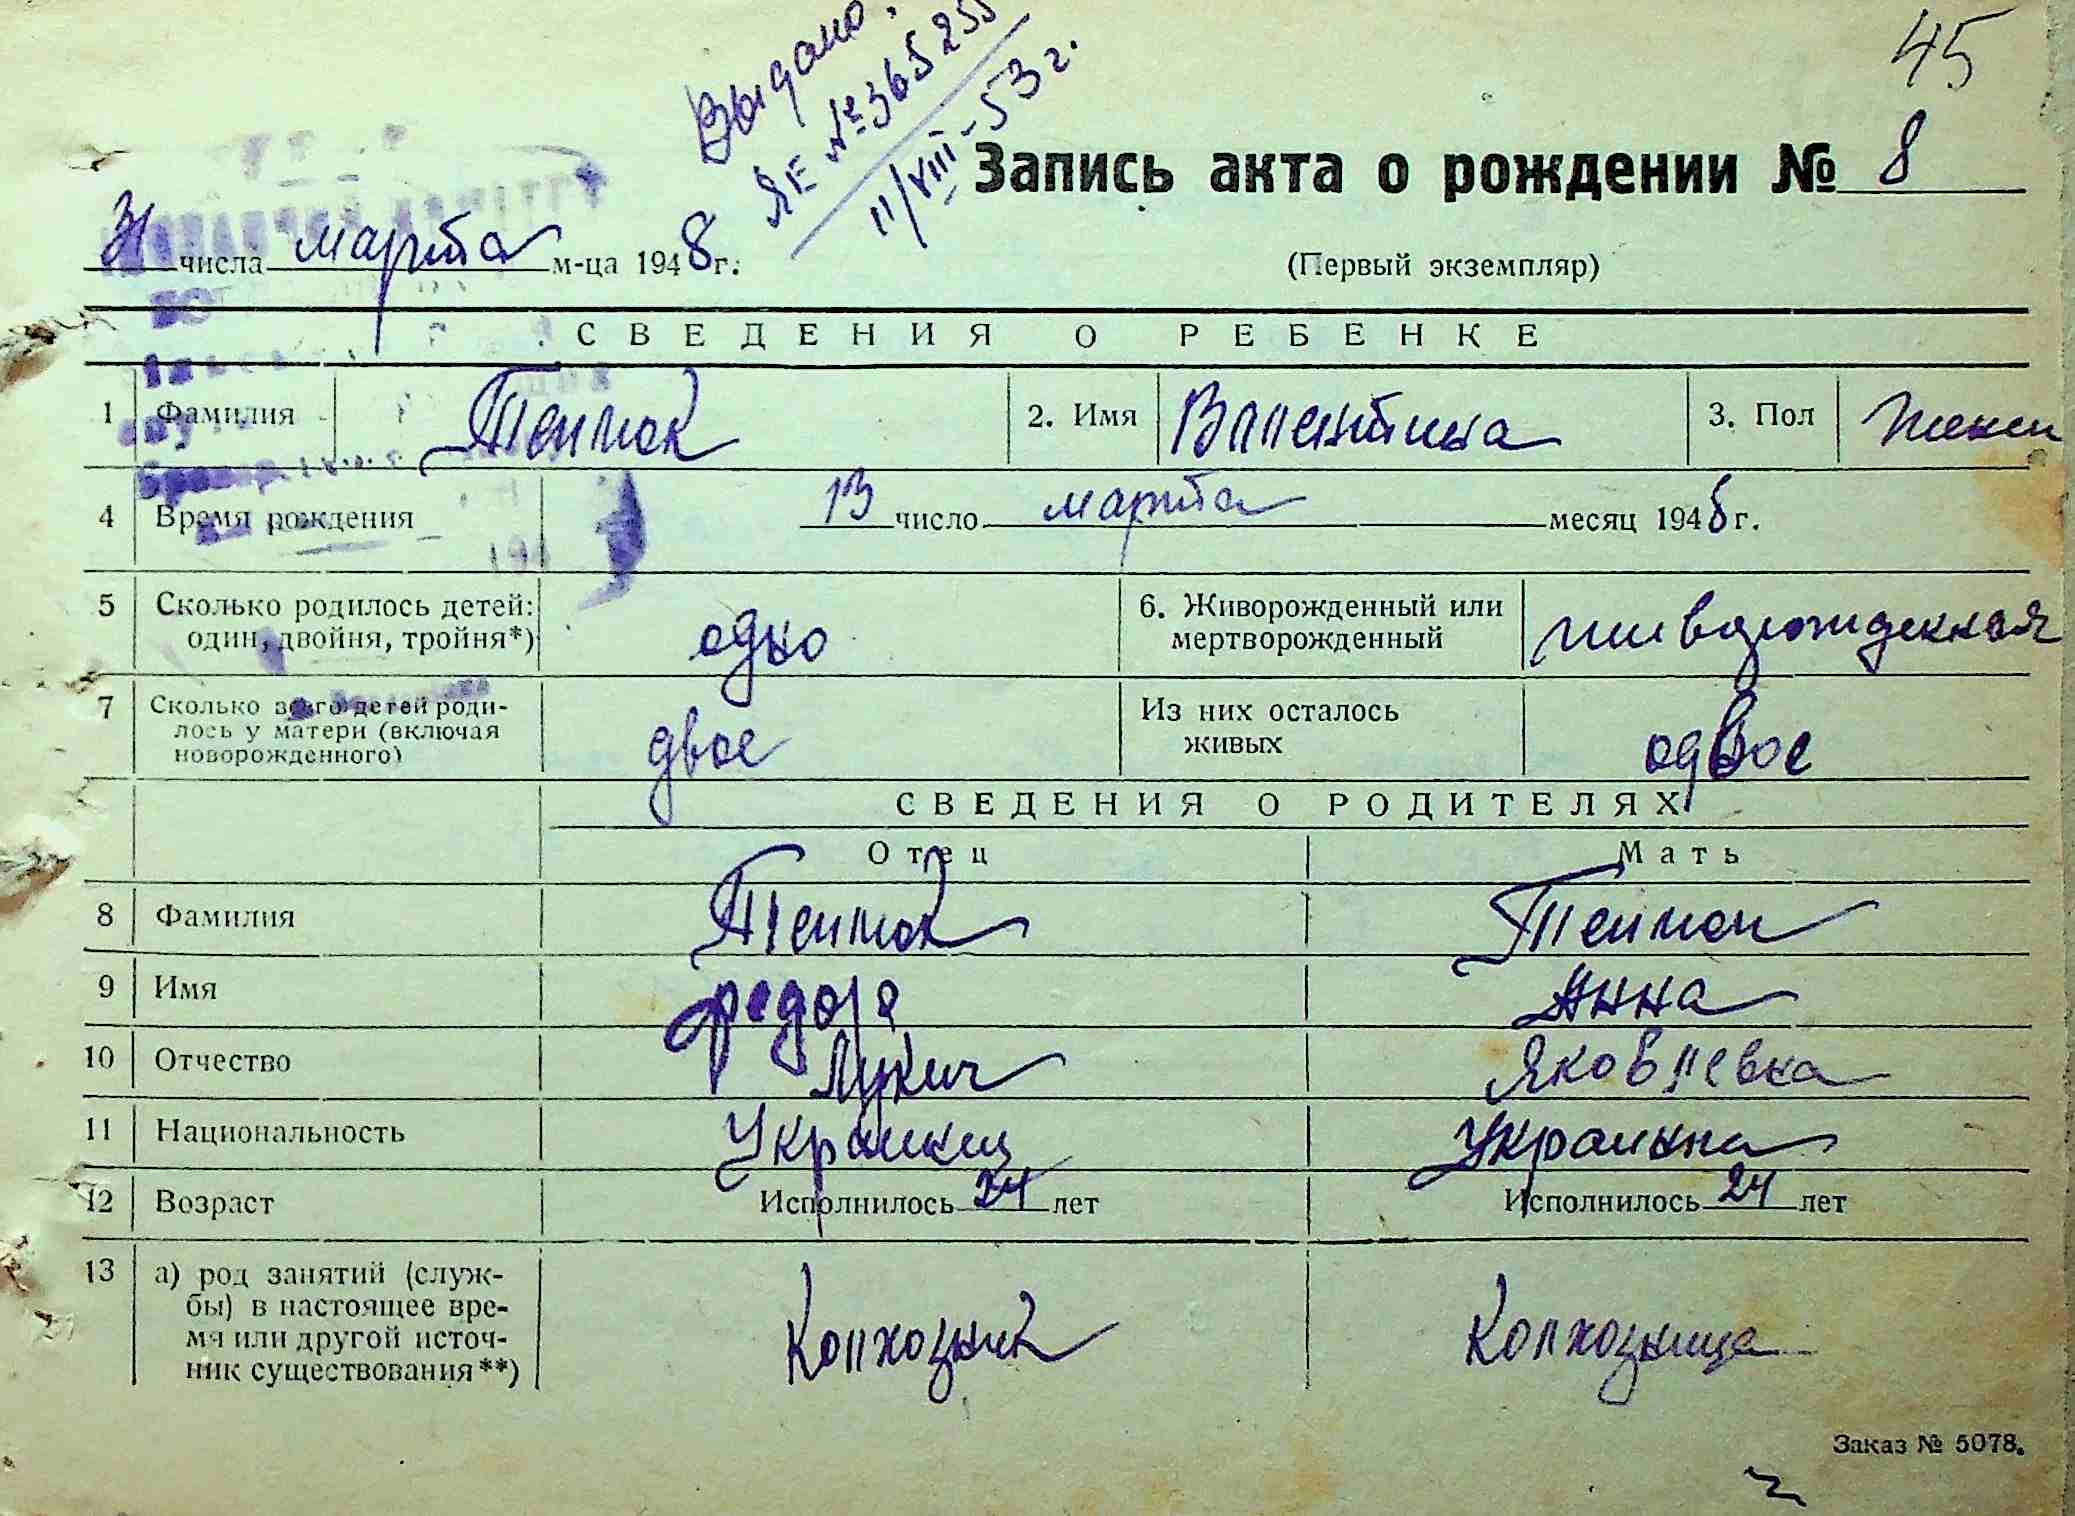 45
Выдано.
ЯЕ № 365255
11/VIII-53 г.
Запись акта о рождении № 8
31 числа марта м-ца 1948 г.
(Первый экземпляр)
СВЕДЕНИЯ О РЕБЕНКЕ
1 Фамилия 2. Имя Валентина 3. Пол женск
4 Время рождения 13 число марта месяц 1948 г.
5 Сколько родилось детей: одно 6. Живорожденный или живорожденная
один, двойня, тройня*) мертворожденный
7 Сколько всего детей роди- двое Из них осталось двое
лось у матери (включая живых
новорожденного)
СВЕДЕНИЯ О РОДИТЕЛЯХ
Отец Мать
8 Фамилия
9 Имя Федор Анна
10 Отчество Лукич Яковлевна
11 Национальность Украинец Украинка
12 Возраст Исполнилось 24 лет Исполнилось 24 лет
13 а) род занятий (служ-
бы) в настоящее вре- Колхозник Колхозница
мя или другой источ-
ник существования**)
Заказ № 5078.